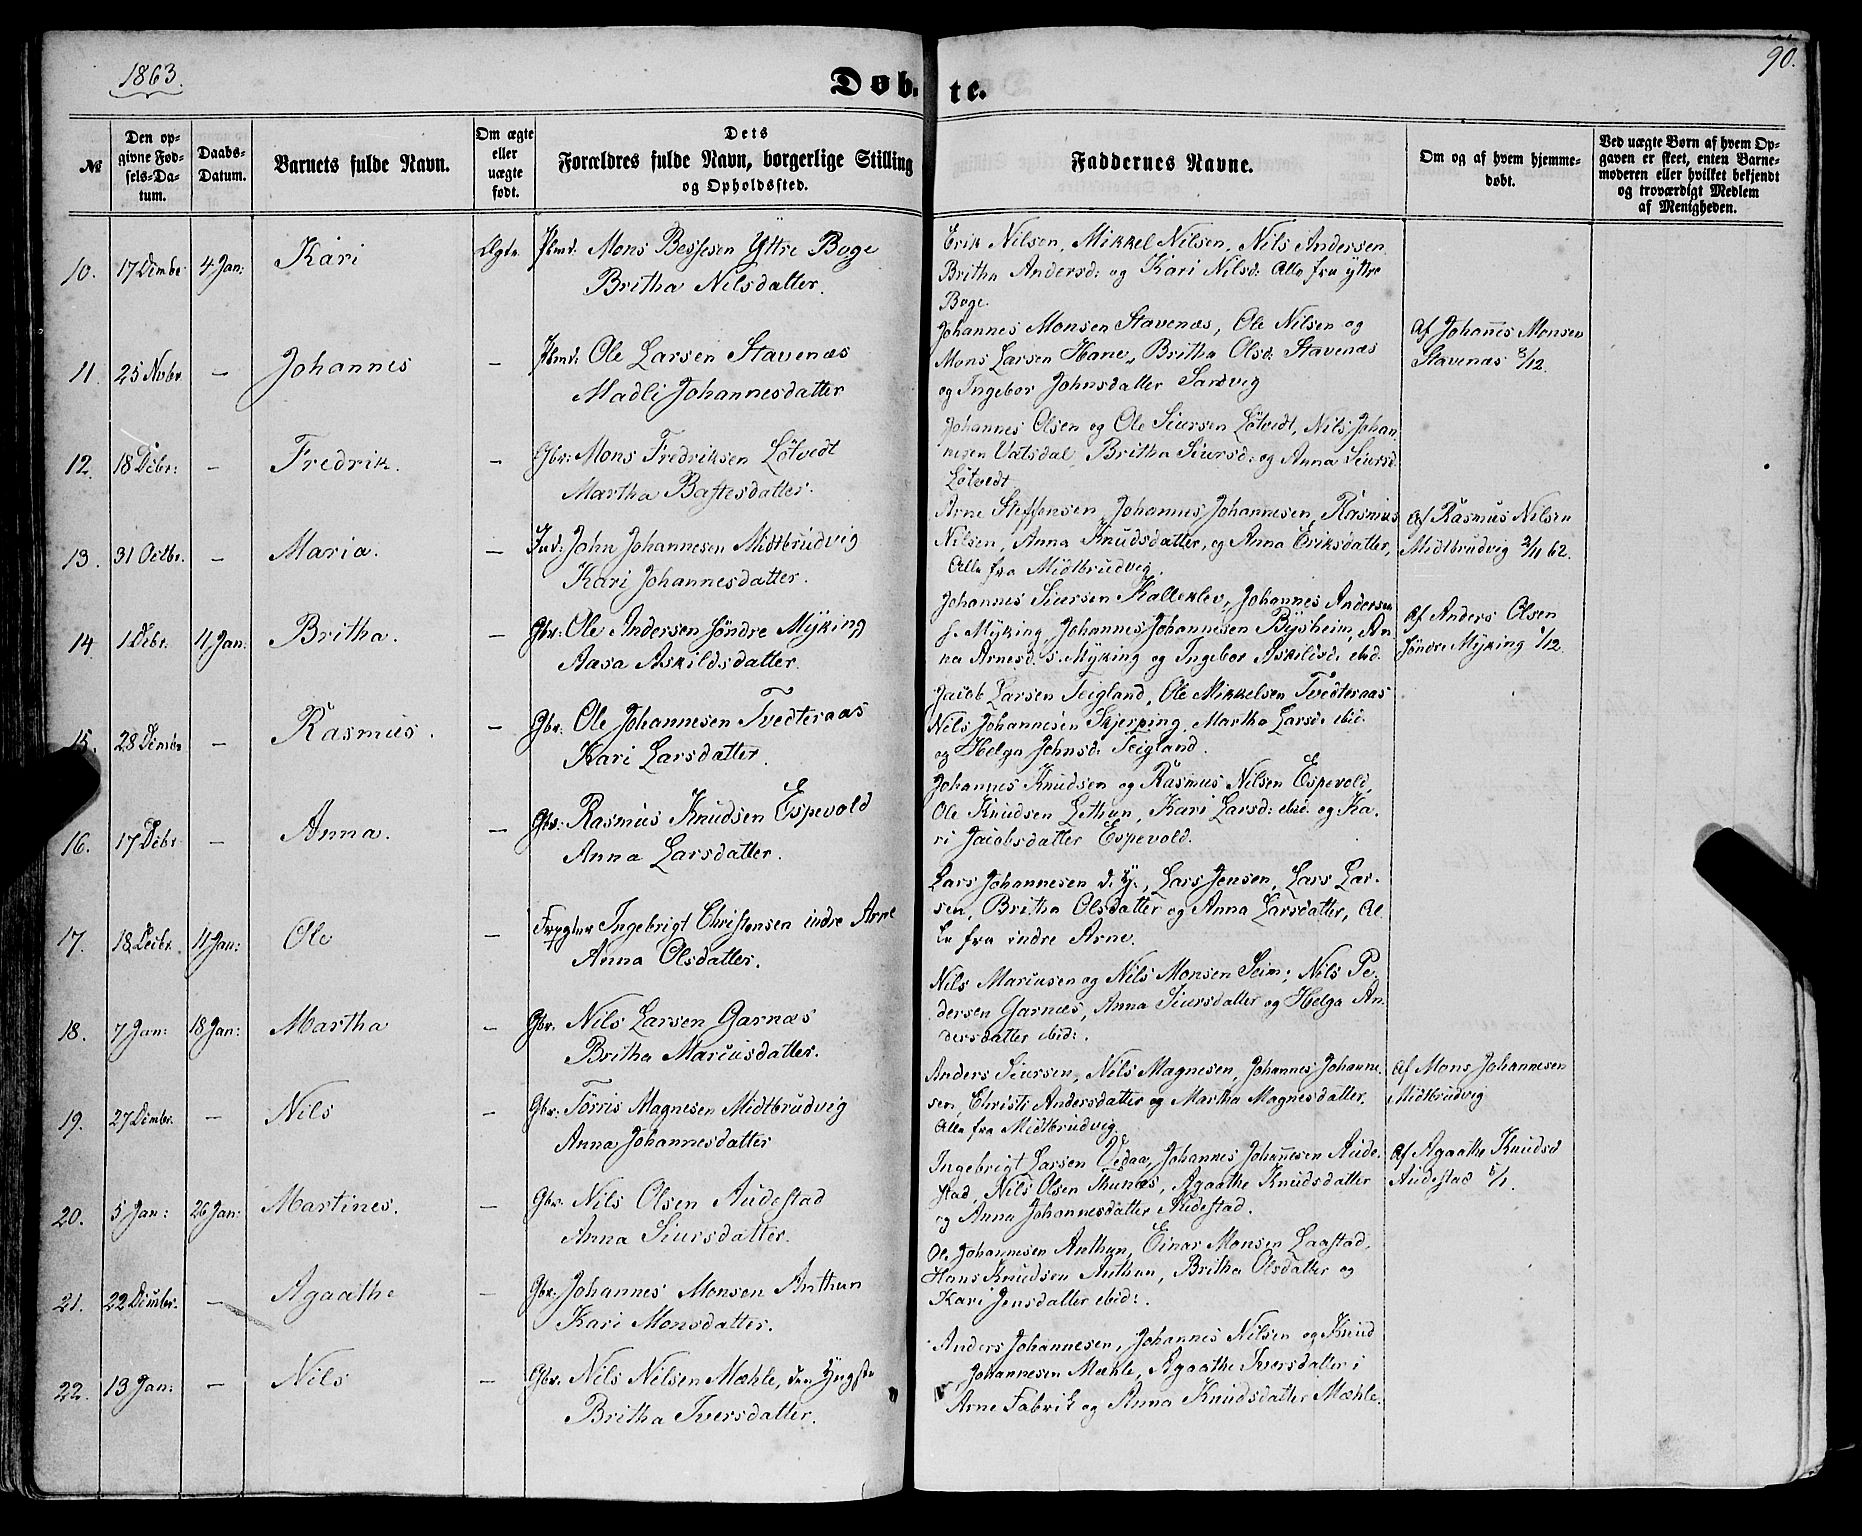 1863.
90.
Døbte.
№
Den opgivne Fødsels-Datum.
Daabs-Datum.
Barnets fulde Navn.
Om ægte eller uægte født.
Dets Forældres fulde Navn, borgerlige Stilling og Opholdssted.
Faddernes Navne.
Om og af hvem hjemmedøbt.
Ved uægte Børn af hvem Opgaven er skeet, enten Barnemoderen eller hvilket bekjendt og troværdigt Medlem af Menigheden.
10. 17 Dembr 4 Jan: Kari Ægte Plmd: Mons Bessesen Yttre Boge
Britha Nilsdatter.
Erik Nilsen, Mikkel Nilsen, Nils Andersen
Britha Andersd: og Kari Nilsd: Alle fra yttre
Boge.
11. 25 Nvbr — Johannes — Plmd: Ole Larsen Stavenæs
Madli Johannesdatter
Johannes Monsen Stavenæs, Ole Nilsen og
Mons Larsen Hane, Britha Olsd: Stavenæs
og Ingebor Johnsdatter Sandvig
Af Johannes Monsen
Stavenæs 8/12.
12. 18 Debr: — Fredrik. — Gbr: Mons Fredriksen Løtvedt
Martha Baftesdatter.
Johannes Olsen og Ole Siursen Løtvedt, Nils Johan
nesen Vatsdal, Britha Siursd: og Anna Siursd
Løtvedt
13. 31 Octbr. — Maria. — Ind: John Johannesen Midtbrudvig
Kari Johannesdatter.
Arne Steffensen, Johannes Johannesen, Rasmus
Nilsen, Anna Knudsdatter, og Anna Eriksdatter,
Alle fra Midtbrudvig.
Af Rasmus Nilsen
Midtbrudvig 2/11 62.
14. 1 Debr. 4 Jan: Britha. — Gbr: Ole Andersen søndre Myking
Aasa Askildsdatter.
Johannes Siursen Kalleklev, Johannes Andersen
s. Myking, Johannes Johannesen Bysheim, An
na Arnesd. s. Myking og Ingebor Askildsd. ebid.
Af Anders Olsen
søndre Myking 1/12.
15. 28 Dembr — Rasmus. — Gbr: Ole Johannesen Tvedteraas
Kari Larsdatter.
Jacob Larsen Teigland, Ole Mikkelsen Tvedteraas
Nils Johannesen Skjerping, Martha Larsd: ebid.
og Helga Johnsd: Teigland.
16. 17 Debr — Anna. — Gbr: Rasmus Knudsen Espevold
Anna Larsdatter.
Johannes Knudsen og Rasmus Nilsen Espevold,
Ole Knudsen Lethun, Kari Larsd: ebid. og Ka-
ri Jacobsdatter Espevold.
17. 18 Debr. 11 Jan: Ole — Ingebrigt Christensen indre Arne
Anna Olsdatter.
Lars Johannesen d. Y., Lars Jensen, Lars Lar-
sen, Britha Olsdatter og Anna Larsdatter, Al-
le fra indre Arne.
18. 7 Jan: 18 Jan: Martha — Gbr. Nils Larsen Garnæs
Britha Mariusdatter.
Nils Mariusen og Nils Monsen Seim, Nils Pe-
dersen Garnæs, Anna Siursdatter og Helga An-
dersdatter ebid:.
19. 27 Dembr. — Nils — Gbr: Tørris Magnesen Midtbrudvig
Anna Johannesdatter
Anders Siursen, Nils Magnesen, Johannes Johanne-
sen, Christi Andersdatter og Martha Magnesdatter,
Alle fra Midtbrudvig.
Af Mons Johannesen
Midtbrudvig
20. 5 Jan: 26 Jan: Martines. — Gbr. Nils Olsen Audestad
Anna Siursdatter.
Ingebrigt Larsen Vedaa, Johannes Johannesen Aude-
stad, Nils Olsen Thunæs, Agaathe Knudsdatter
og Anna Johannesdatter Audestad.
Af Agaathe Knudsd
Audestad 5/1.
21. 22 Dembr. — Agaathe — Gbr: Johannes Monsen Anthun
Kari Monsdatter.
Ole Johannesen Anthun, Einar Monsen Laastad,
Hans Knudsen Anthun, Britha Olsdatter og
Kari Jensdatter ebid:.
22. 13 Jan: — Nils — Gbr. Nils Nilsen Mæhle, den Yngste
Britha Iversdatter.
Anders Johannesen, Johannes Nilsen og Knud
Johannesen Mæhle, Agaathe Iversdatter i
Arne Fabrik og Anna Knudsdatter Mæhle.